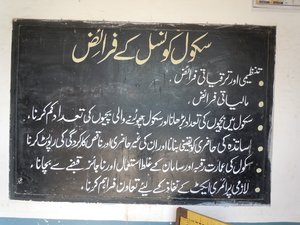 سکول کونسل کے فرائض
تنظیمی اور ترقیاتی فرائض .
مالیاتی فرائض .
سکول میں بچوں کی تعداد بڑھانا اور سکول چھوڑنے والی بچیوں کی تعداد کم کرنا .
اساتذہ کی حاضری کو یقینی بنانا اور ان کی غیر حاضری اور ناقص کارکردگی کی رپورٹ کرنا
سکول کی عمارت اور سامان کے غلط استعمال اور ناجائز قبضے سے بچانا .
لازمی پرائمری ایکٹ کے نفاذ کے لیئے تعاون فراہم کرنا .